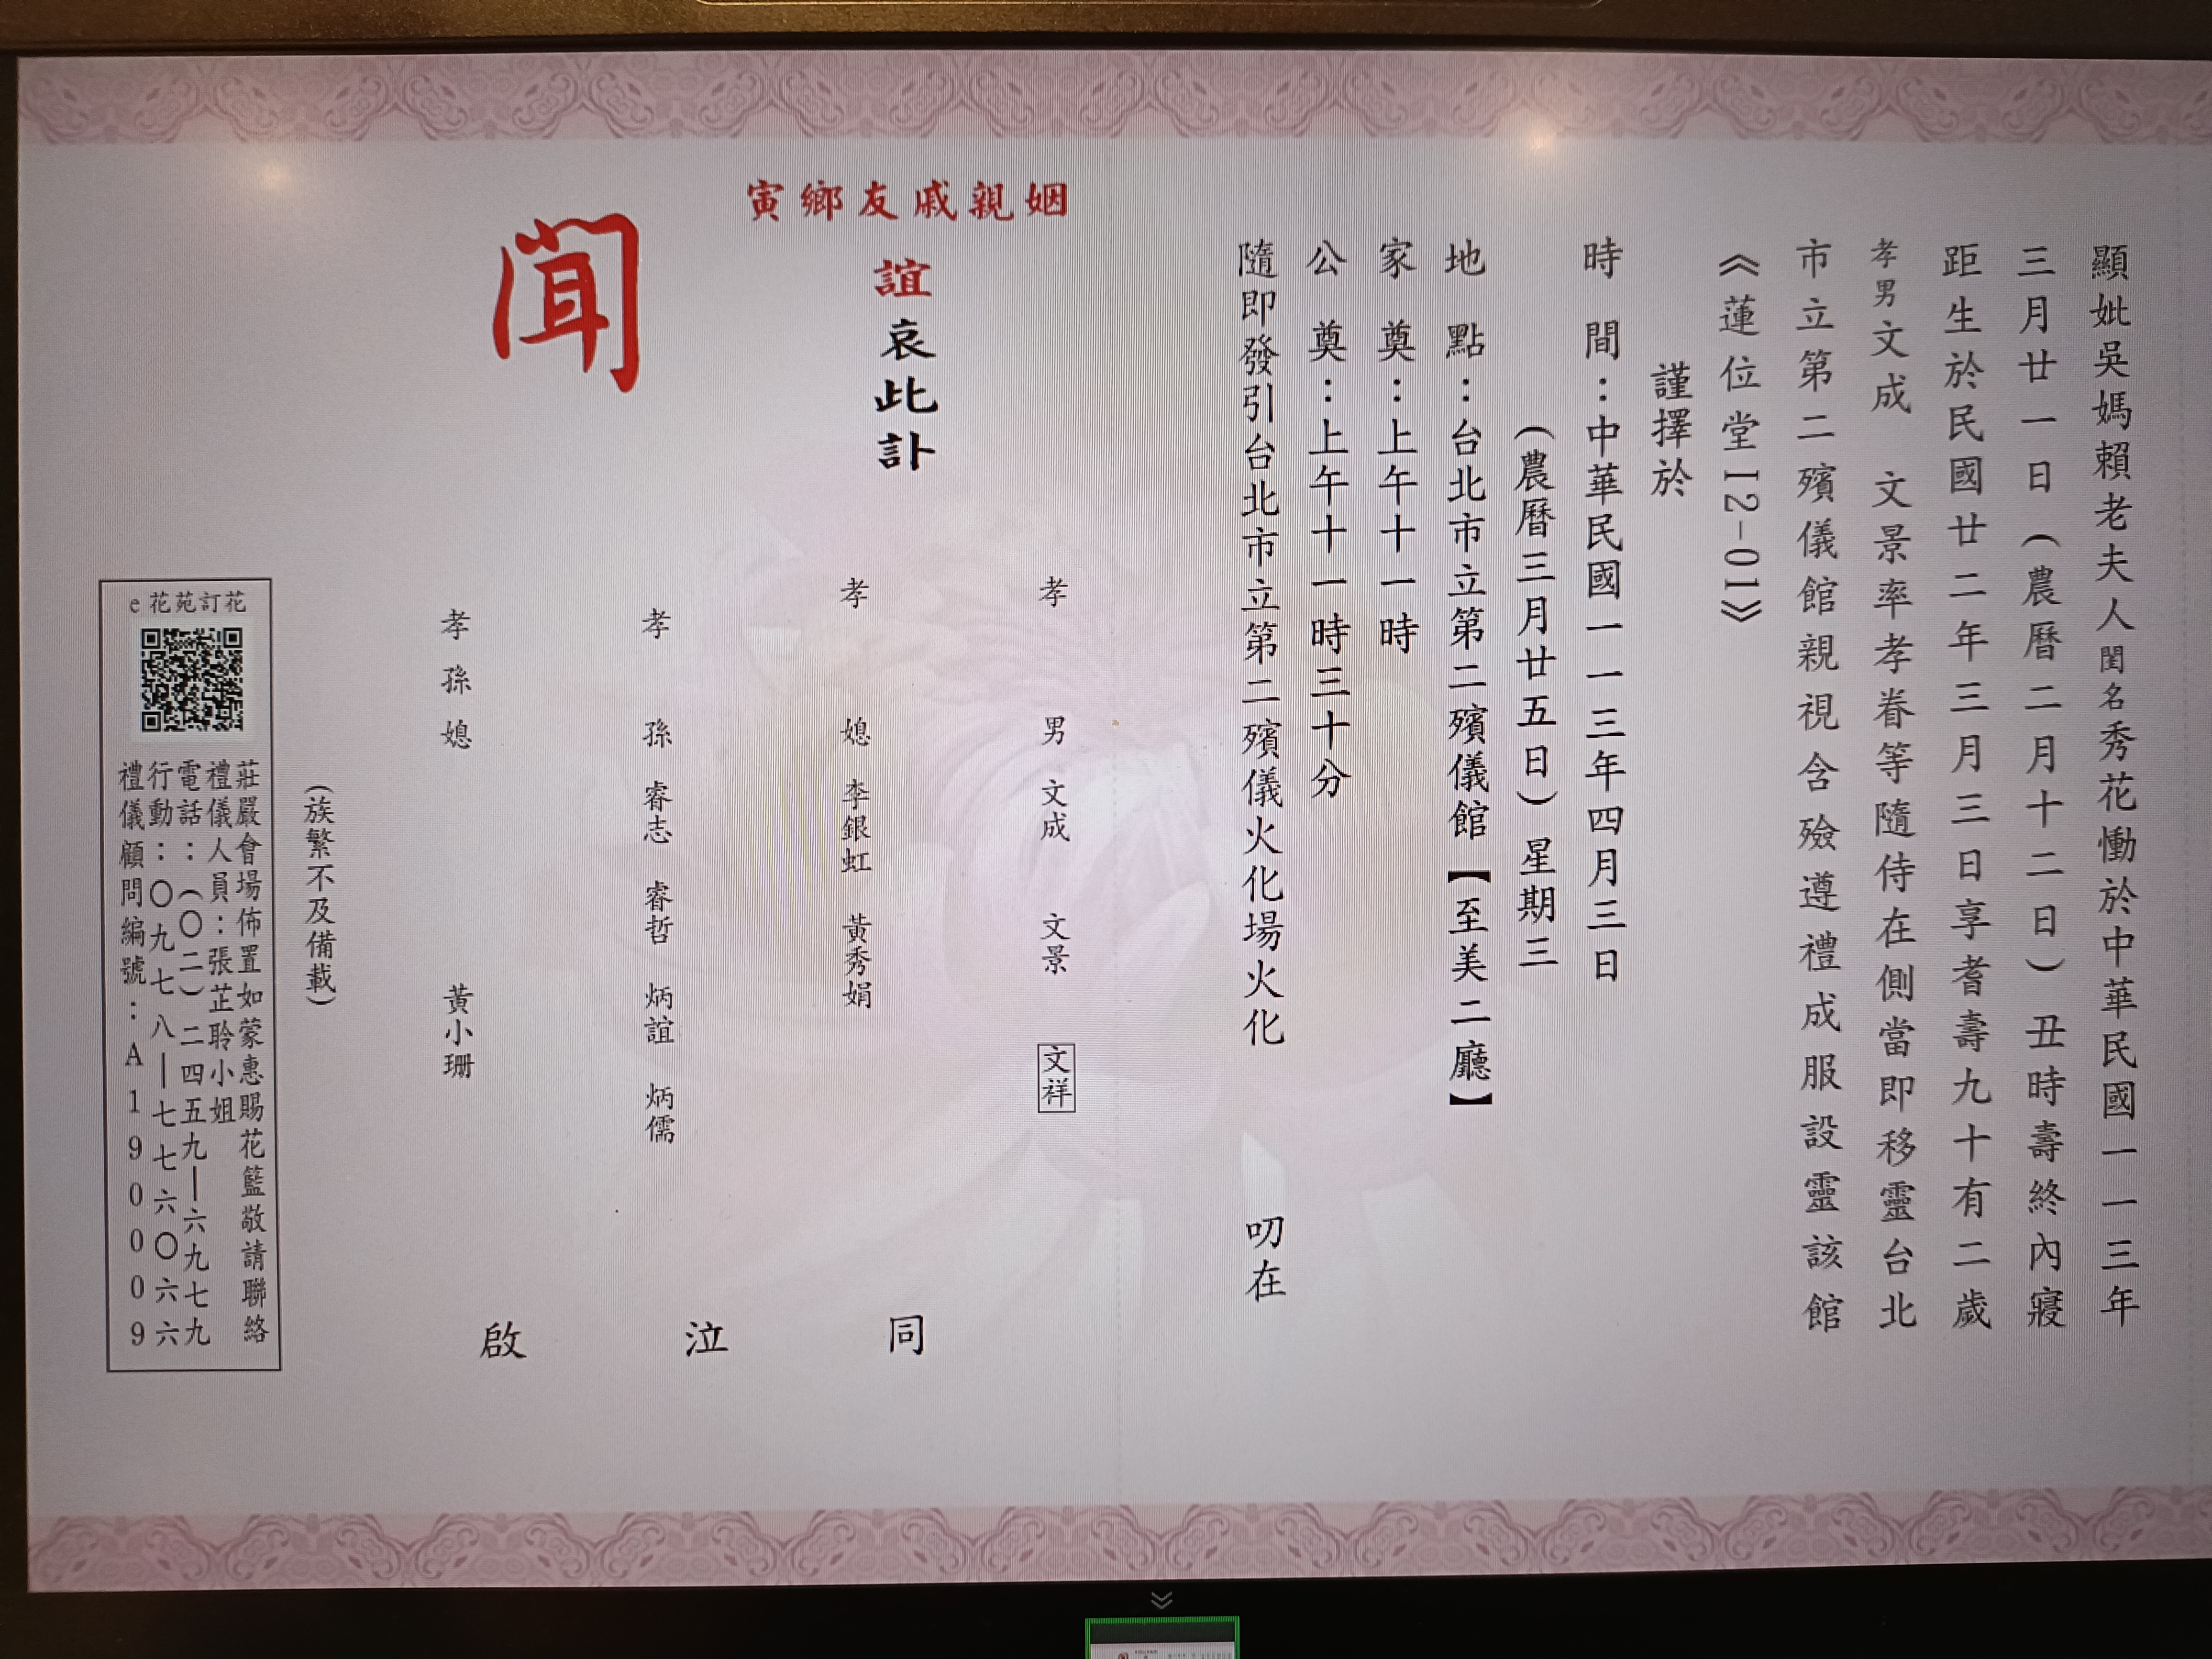 顯妣吳媽賴老夫人閨名秀花慟於中華民國一一三年
三月廿一日(農曆二月十二日)丑時壽終內寢
距生於民國廿二年三月三日享耆壽九十有二歲
孝男文成 文景率孝眷等隨侍在側當即移靈台北
市立第二殯儀館親視含殮遵禮成服設靈該館
《蓮位堂I2-01》
謹擇於
時間:中華民國一一三年四月三日
(農曆三月廿五日)星期三
地點:台北市立第二殯儀館【至美二廳】
家奠:上午十一時
公奠:上午十一時三十分
隨即發引台北市立第二殯儀火化場火化 叨在
寅鄉友戚親姻
誼哀此訃
聞
孝男 文成 文景 文祥
孝媳 李銀虹 黃秀娟
孝孫 睿志 睿哲 炳誼 炳儒
孝孫媳 黃小珊
同泣啟
(族繁不及備載)
e花苑訂花
莊嚴會場佈置如蒙惠賜花籃敬請聯絡
禮儀人員:張芷聆小姐
電話:(〇二)二四五九—六九七九
行動:〇九七八—七七六〇六六
禮儀顧問編號:A1900009